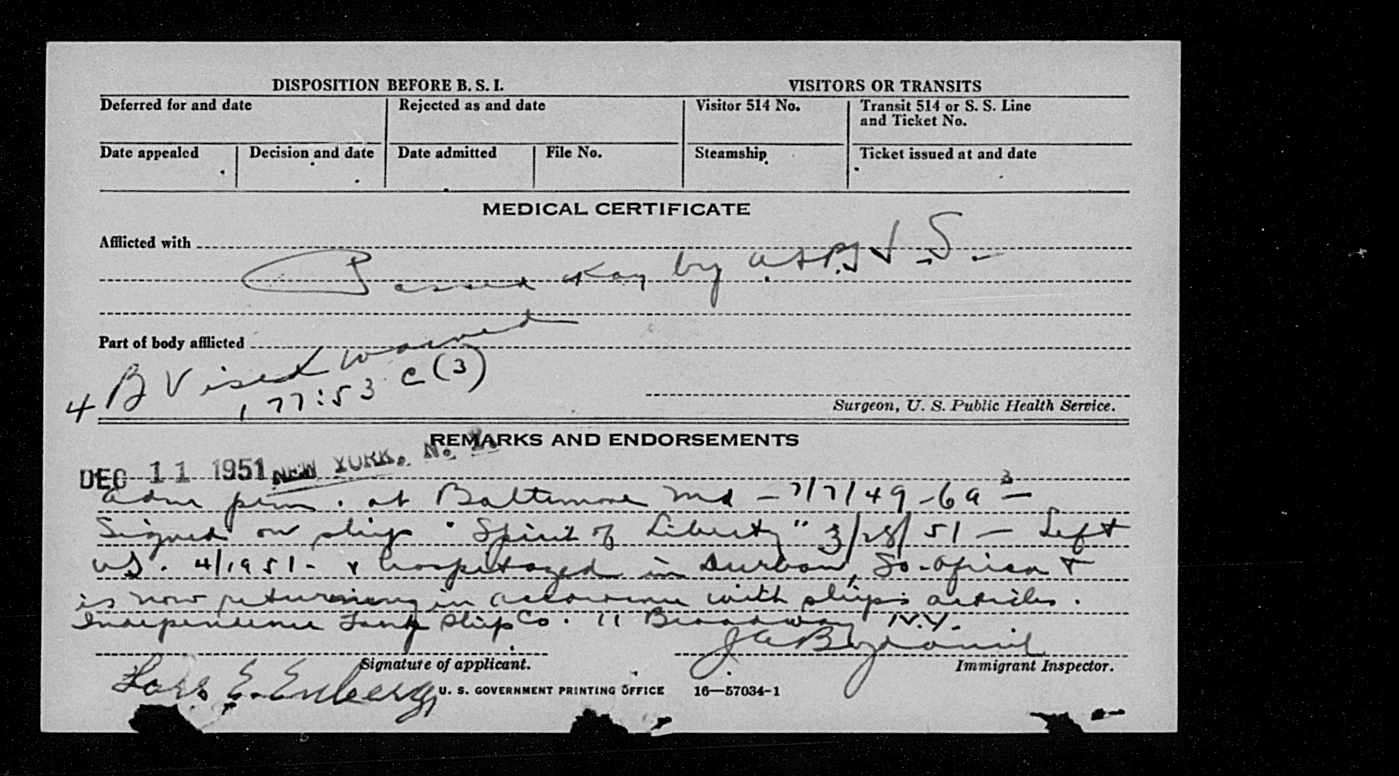 DISPOSITION BEFORE B. S. I. VISITORS OR TRANSITS
Deferred for and date Rejected as and date Visitor 514 No. Transit 514 or S. S. Line and Ticket No.
Date appealed Decision and date Date admitted File No. Steamship Ticket issued at and date
MEDICAL CERTIFICATE
Afflicted with
Passed by
Part of body afflicted
Vised waived
4 B
177:53 C (3)
Surgeon, U. S. Public Health Service.
REMARKS AND ENDORSEMENTS
DEC 11 1951 NEW YORK, N. Y.
adm perm. at Baltimore Md – 7/7/49 – 6a 3 –
Signed on ship "Spirit of Liberty" 3/28/51 – Left
US. 4/1951 – & hospitalized in Durban, So. Africa &
is now returning in accordance with ship's articles.
Independence Tank Ship Co. 11 Broadway N.Y.
Signature of applicant. Immigrant Inspector.
Lars E. Enberg
U. S. GOVERNMENT PRINTING OFFICE 16—57034-1